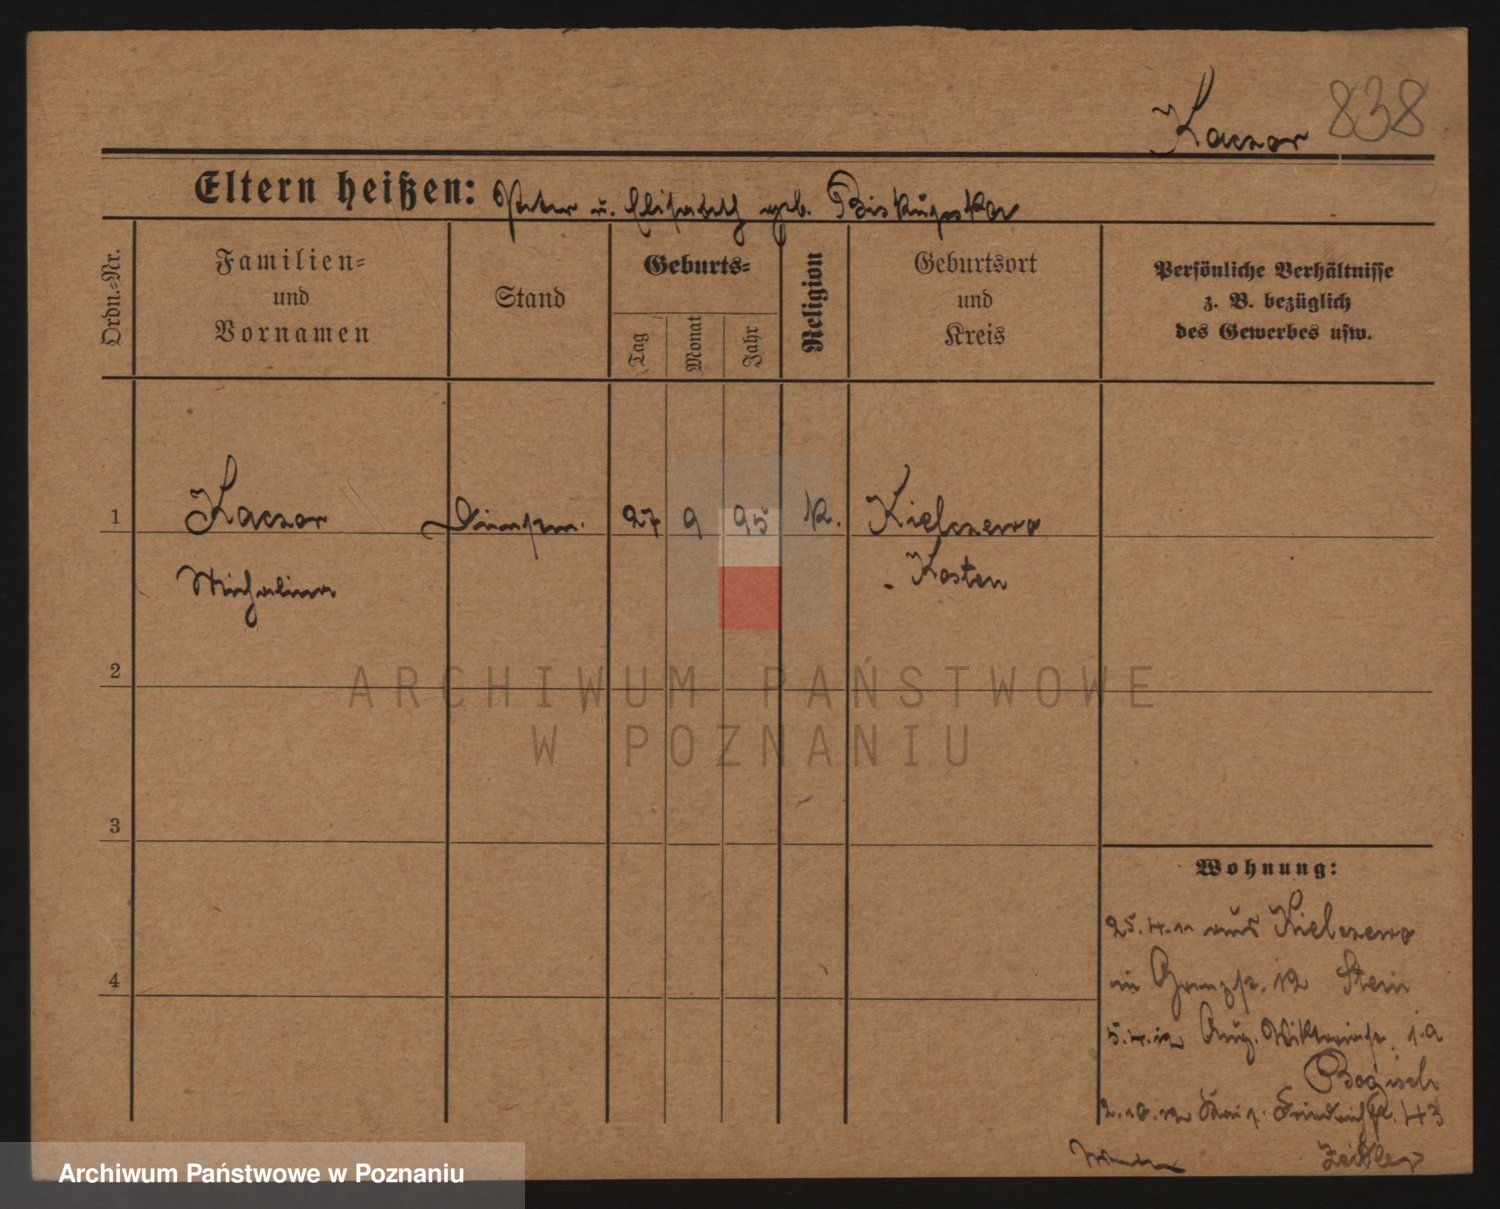 Kaczor 838
Eltern heißen: Peter u. Elisabeth geb. Biskupska
Ordn.-Nr.
Familien-
und
Vornamen
Stand
Geburts-
Tag
Monat
Jahr
Religion
Geburtsort
und
Kreis
Persönliche Verhältnisse
z. B. bezüglich
des Gewerbes usw.
1
Kaczor
27 9 95 k. Kielczewo
Michalina
Kosten
2
ARCHIWUM PAŃSTWOWE
W POZNANIU
3
4
Wohnung:
25.4.11 aus Kielczewo
in 12 Stein
5.4.12 Aug. Viktoriastr. 1a
2.10.12 Friedrichstr. 43
Zeidler
Archiwum Państwowe w Poznaniu